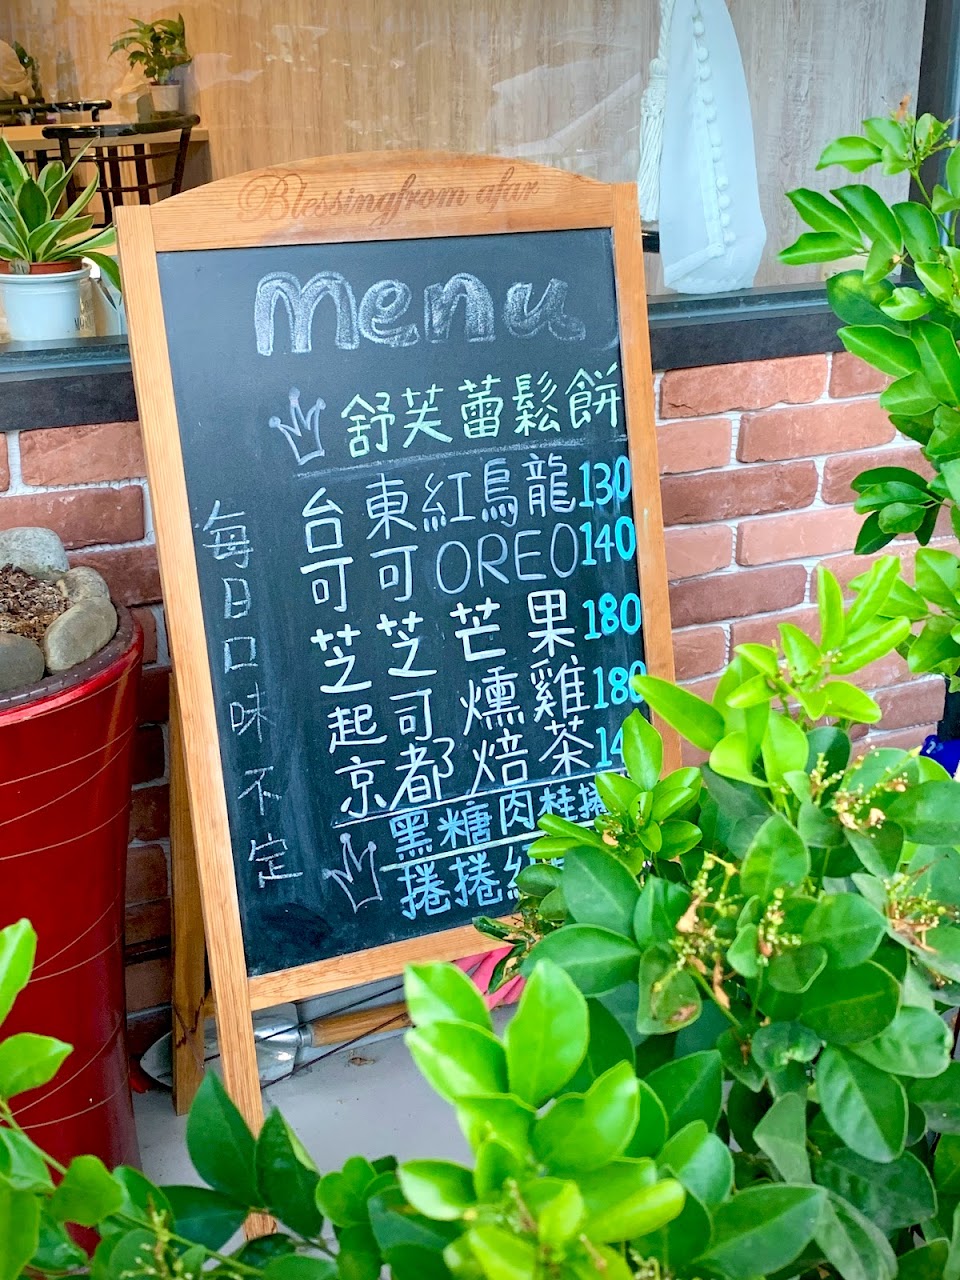 Blessingfrom afar
menu
舒芙蕾鬆餅
台東紅烏龍130
可可OREO140
芝芝芒果180
起司燻雞180
京都焙茶14
黑糖肉桂捲
捲捲
每日口味不定